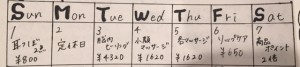 Sun Mon Tue Wed Thu Fri Sat
1
耳つぼ
2コ
¥800
2
定休日
3
筋肉
ヒーリング
¥4320
4
小顔
マッサージ
¥1620
5
マッサージ
¥1620
6
リップケア
¥650
7
商品
ポイント
2倍